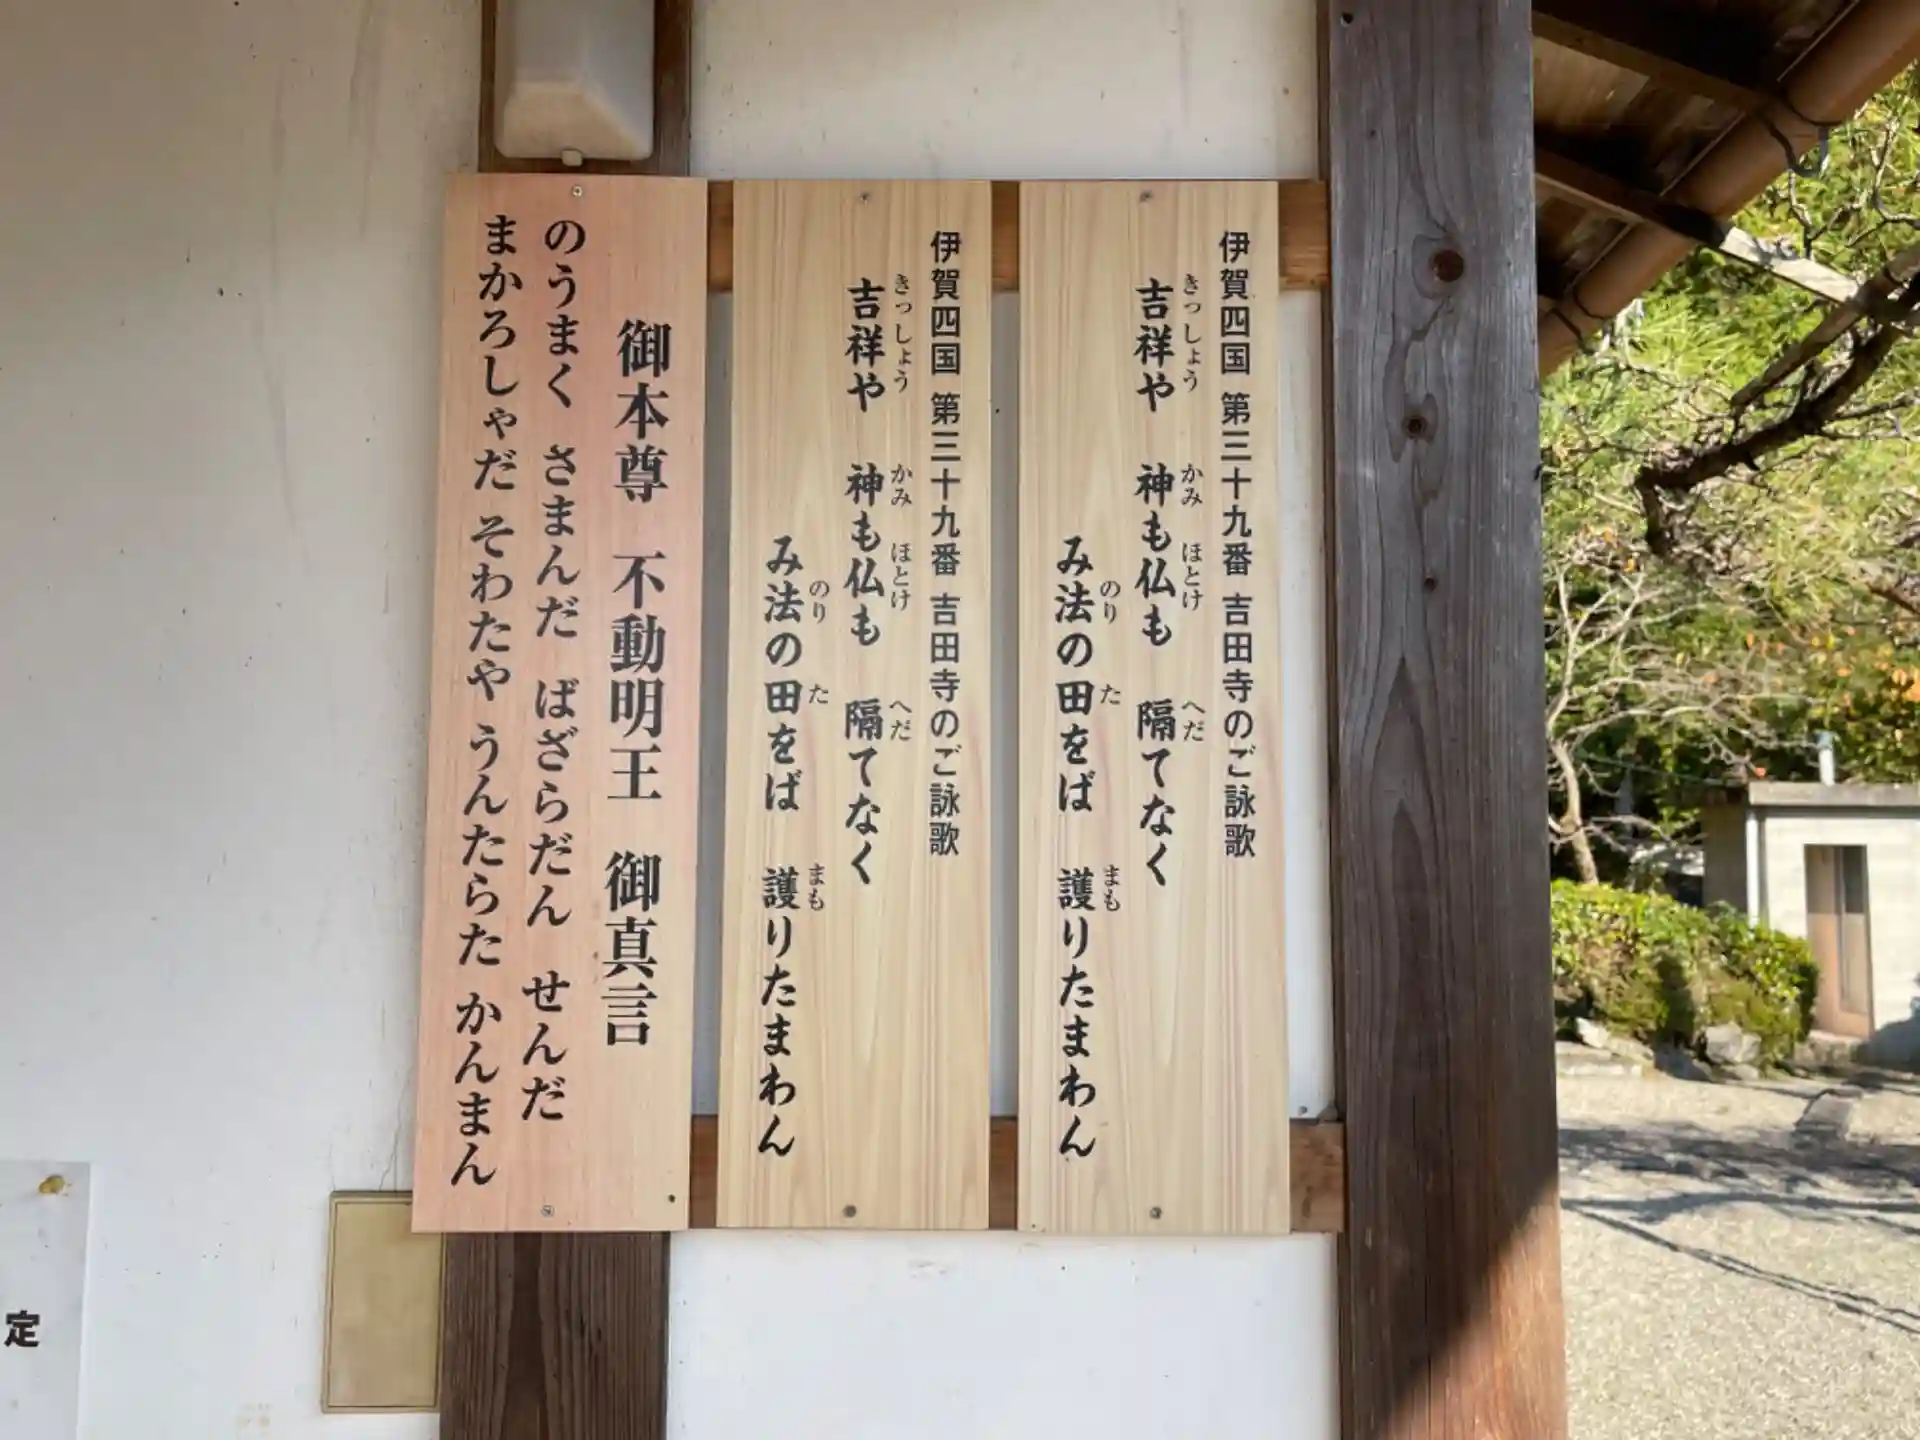 伊賀四国 第三十九番 吉田寺のご詠歌
吉祥や 神も仏も 隔てなく
きっしょう かみ ほとけ へだ
み法の田をば 護りたまわん
のり た まも
伊賀四国 第三十九番 吉田寺のご詠歌
吉祥や 神も仏も 隔てなく
きっしょう かみ ほとけ へだ
み法の田をば 護りたまわん
のり た まも
御本尊 不動明王 御真言
のうまく さまんだ ばざらだん せんだ
まかろしゃだ そわたや うんたらた かんまん
定